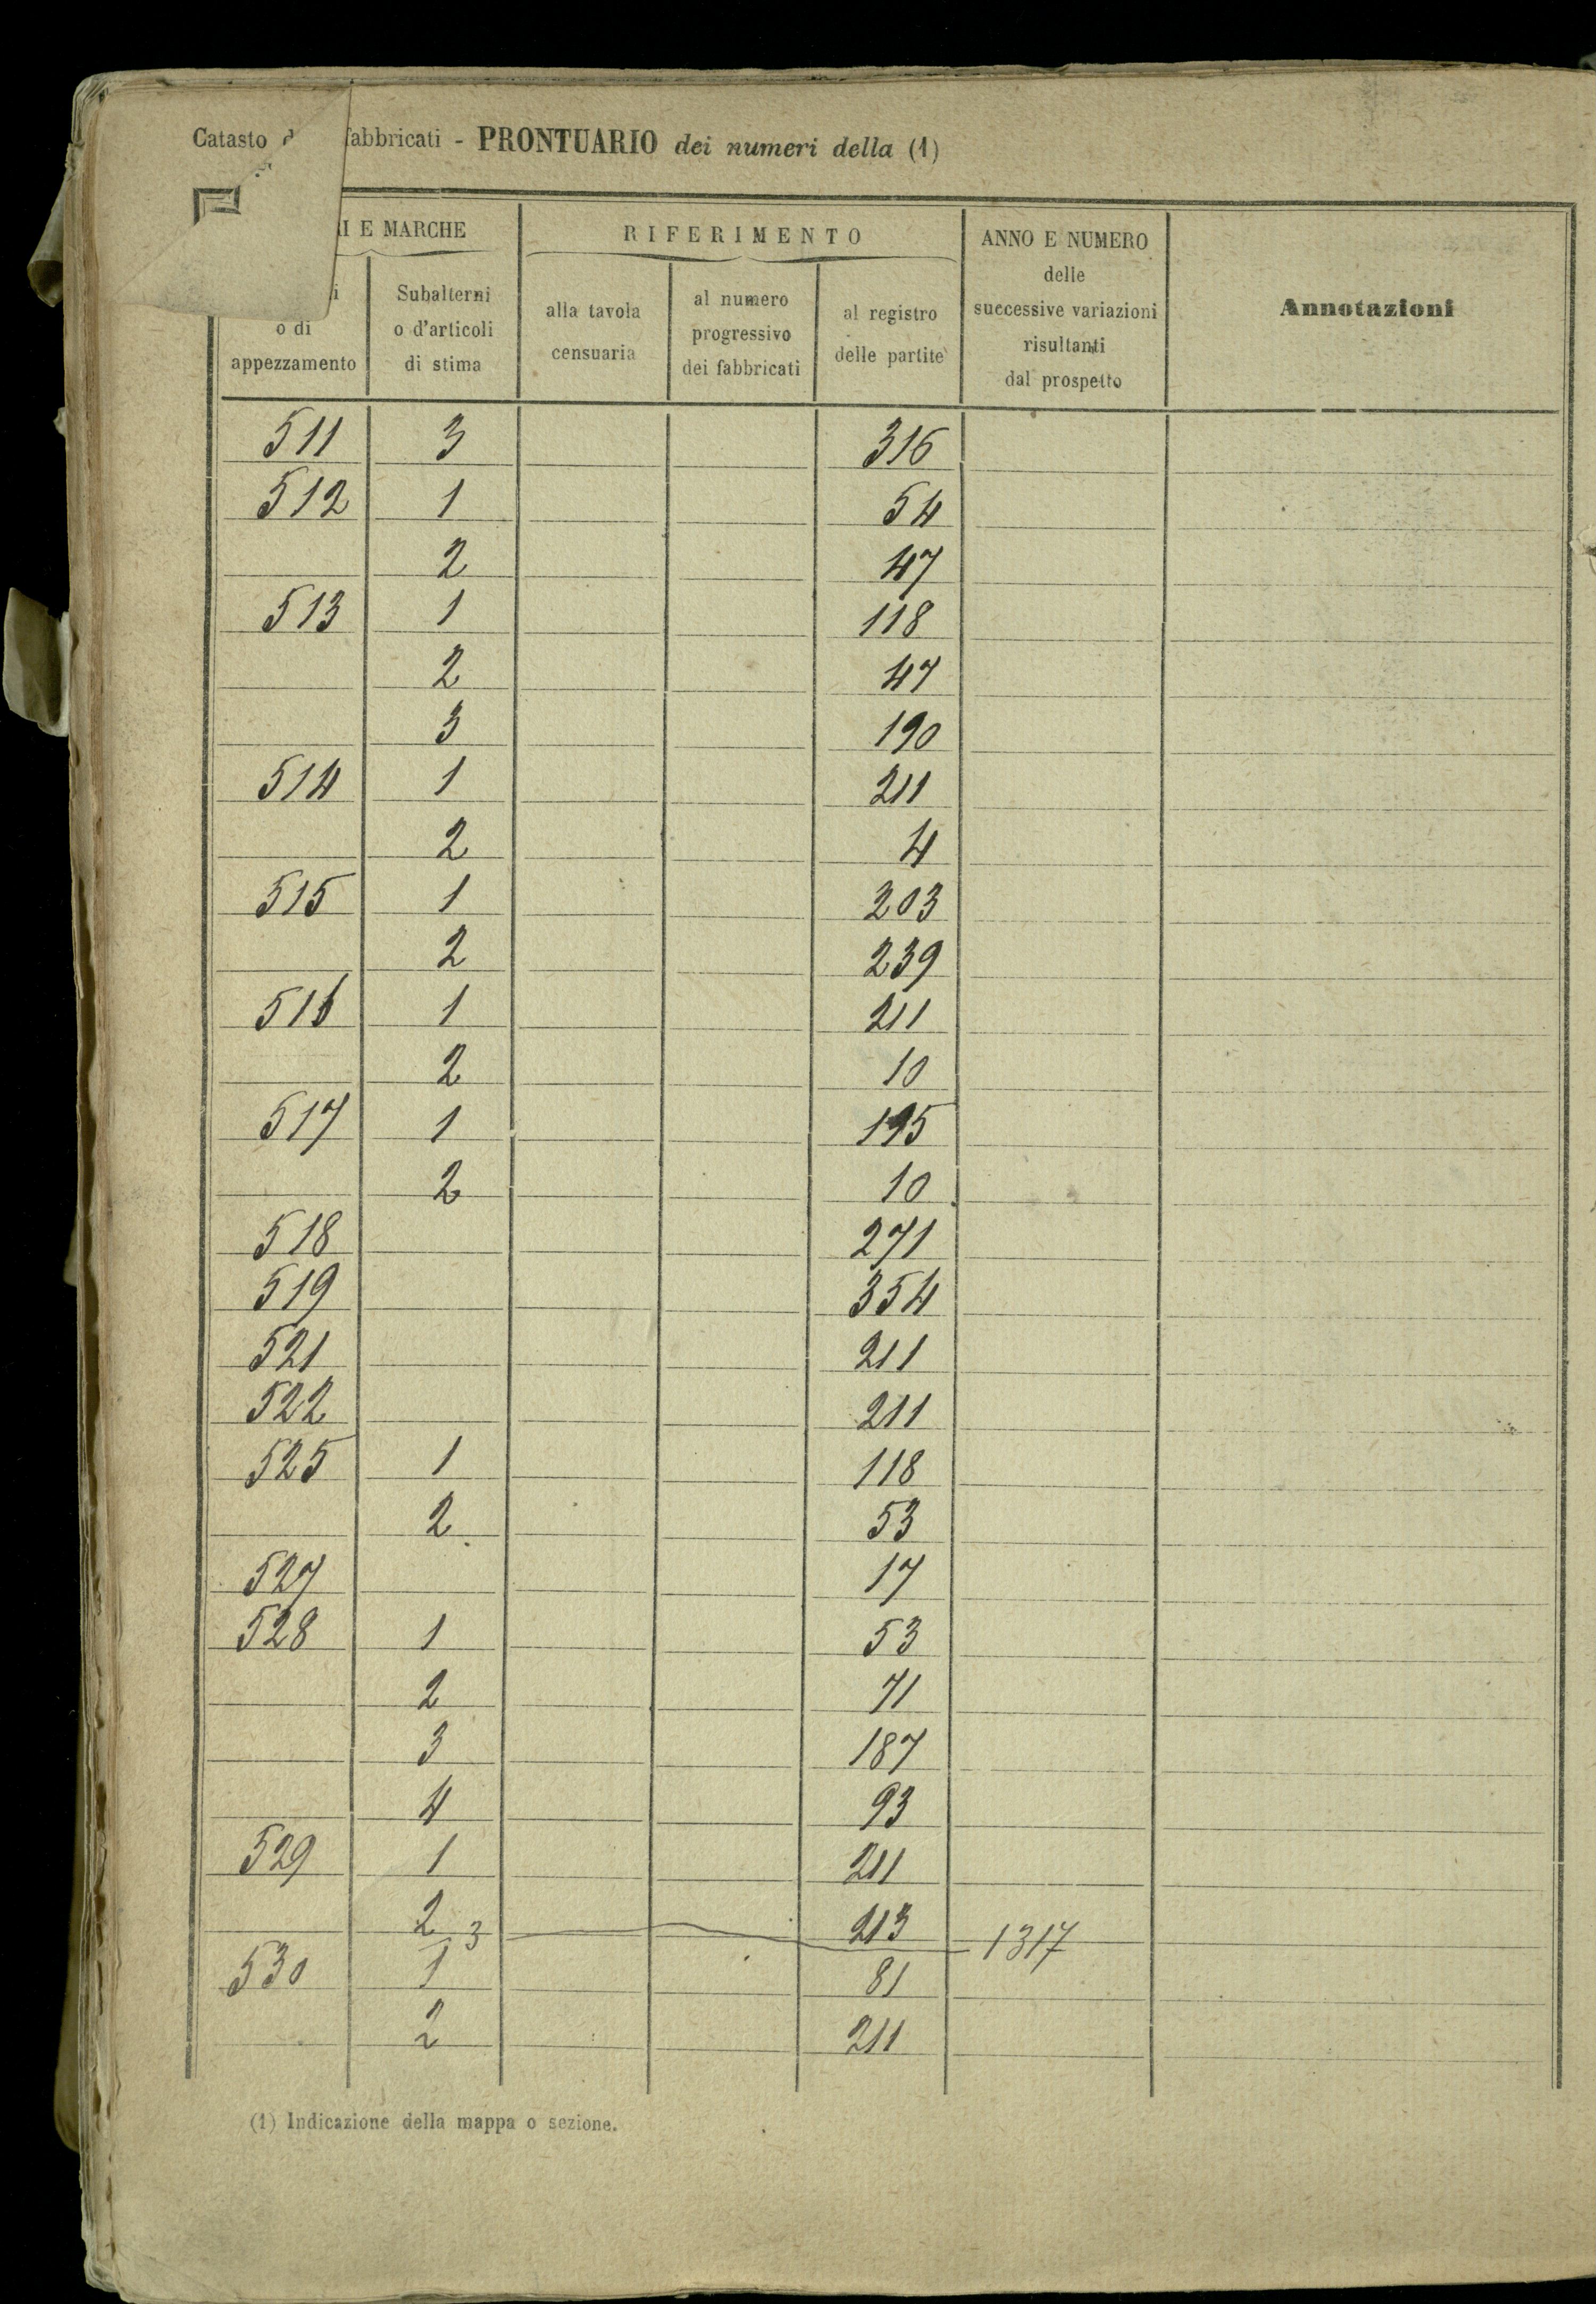 Catasto d fabbricati - PRONTUARIO dei numeri della (1)
I E MARCHE
RIFERIMENTO
ANNO E NUMERO
delle
successive variazioni
risultanti
dal prospetto
Annotazioni
i
o di
appezzamento
Subalterni
o d'articoli
di stima
alla tavola
censuaria
al numero
progressivo
dei fabbricati
al registro
delle partite
511 3 316
512 1 54
2 47
513 1 118
2 47
3 190
514 1 211
2 4
515 1 203
2 239
516 1 211
2 10
517 1 195
2 10
518 271
519 354
521 211
522 211
525 1 118
2 53
527 17
528 1 53
2 71
3 187
4 93
529 1 211
2 213
3 1317
530 1 81
2 211
(1) Indicazione della mappa o sezione.